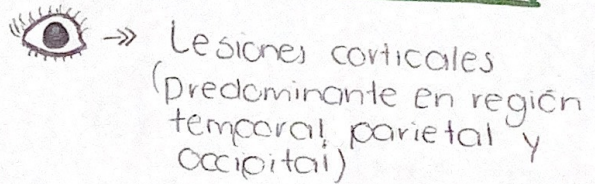 →» Lesiones corticales
(predominante en región
temporal, parietal y
occipital)